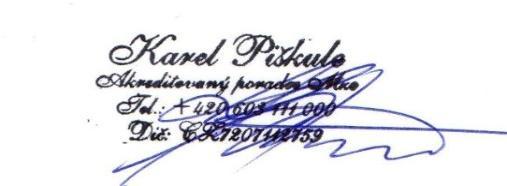 Karel Piškule
Akreditovaný poradce Mko
Tel.: +420 603 111 000
Dič: CZ7207112759